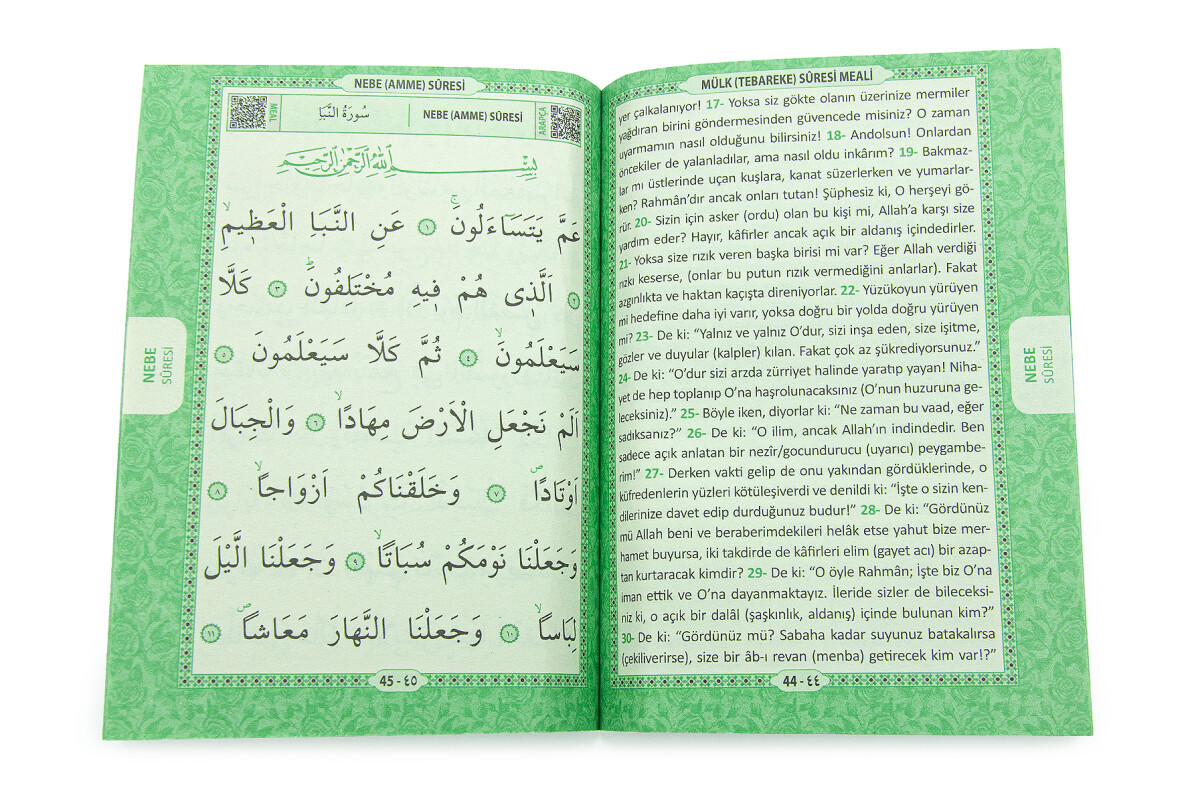 MÜLK (TEBAREKE) SÛRESİ MEALİ
yer çalkalanıyor! 17- Yoksa siz gökte olanın üzerinize mermiler
yağdıran birini göndermesinden güvencede misiniz? O zaman
uyarmamın nasıl olduğunu bilirsiniz! 18- Andolsun! Onlardan
öncekiler de yalanladılar, ama nasıl oldu inkârım? 19- Bakmaz-
lar mı üstlerinde uçan kuşlara, kanat süzerlerken ve yumarlar-
ken? Rahmân’dır ancak onları tutan! Şüphesiz ki, O herşeyi gö-
rür. 20- Sizin için asker (ordu) olan bu kişi mi, Allah’a karşı size
yardım eder? Hayır, kâfirler ancak açık bir aldanış içindedirler.
21- Yoksa size rızık veren başka birisi mi var? Eğer Allah verdiği
rızkı keserse, (onlar bu putun rızık vermediğini anlarlar). Fakat
azgınlıkta ve haktan kaçışta direniyorlar. 22- Yüzükoyun yürüyen
mi hedefine daha iyi varır, yoksa doğru bir yolda doğru yürüyen
mi? 23- De ki: “Yalnız ve yalnız O’dur, sizi inşa eden, size işitme,
gözler ve duyular (kalpler) kılan. Fakat çok az şükrediyorsunuz.”
24- De ki: “O’dur sizi arzda zürriyet halinde yaratıp yayan! Niha-
yet de hep toplanıp O’na haşrolunacaksınız (O’nun huzuruna ge-
leceksiniz).” 25- Böyle iken, diyorlar ki: “Ne zaman bu vaad, eğer
sadıksanız?” 26- De ki: “O ilim, ancak Allah’ın indindedir. Ben
sadece açık anlatan bir nezîr/gocundurucu (uyarıcı) peygambe-
rim!” 27- Derken vakti gelip de onu yakından gördüklerinde, o
küfredenlerin yüzleri kötüleşiverdi ve denildi ki: “İşte o sizin ken-
dilerinize davet edip durduğunuz budur!” 28- De ki: “Gördünüz
mü Allah beni ve beraberimdekileri helâk etse yahut bize mer-
hamet buyursa, iki takdirde de kâfirleri elim (gayet acı) bir azap-
tan kurtaracak kimdir? 29- De ki: “O öyle Rahmân; İşte biz O’na
iman ettik ve O’na dayanmaktayız. İleride sizler de bileceksi-
niz ki, o açık bir dalâl (şaşkınlık, aldanış) içinde bulunan kim?”
30- De ki: “Gördünüz mü? Sabaha kadar suyunuz batakalırsa
(çekiliverirse), size bir âb-ı revan (menba) getirecek kim var!?”
44 - ٤٤
NEBE
SÛRESİ
NEBE (AMME) SÛRESİ
MEAL
سُورَةُ النَّبَأِ
NEBE (AMME) SÛRESİ
ARAPÇA
بِسْمِ اللّٰهِ الرَّحْمٰنِ الرَّحِيمِ
عَمَّ يَتَسَٓاءَلُونَۚ ﴿١﴾ عَنِ النَّبَأِ الْعَظ۪يمِۙ
﴿٢﴾ اَلَّذ۪ي هُمْ ف۪يهِ مُخْتَلِفُونَۜ ﴿٣﴾ كَلَّا
سَيَعْلَمُونَۙ ﴿٤﴾ ثُمَّ كَلَّا سَيَعْلَمُونَ ﴿٥﴾
اَلَمْ نَجْعَلِ الْاَرْضَ مِهَادًاۙ ﴿٦﴾ وَالْجِبَالَ
اَوْتَادًاۖ ﴿٧﴾ وَخَلَقْنَاكُمْ اَزْوَاجًاۙ ﴿٨﴾
وَجَعَلْنَا نَوْمَكُمْ سُبَاتًاۙ ﴿٩﴾ وَجَعَلْنَا الَّيْلَ
لِبَاسًاۙ ﴿١٠﴾ وَجَعَلْنَا النَّهَارَ مَعَاشًاۖ ﴿١١﴾
45 - ٤٥
NEBE
SÛRESİ